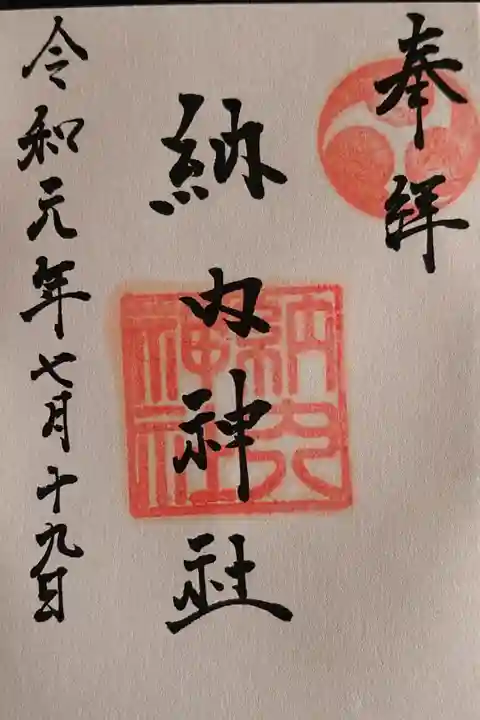 奉拝
納内神社
令和元年七月十九日
納内神社